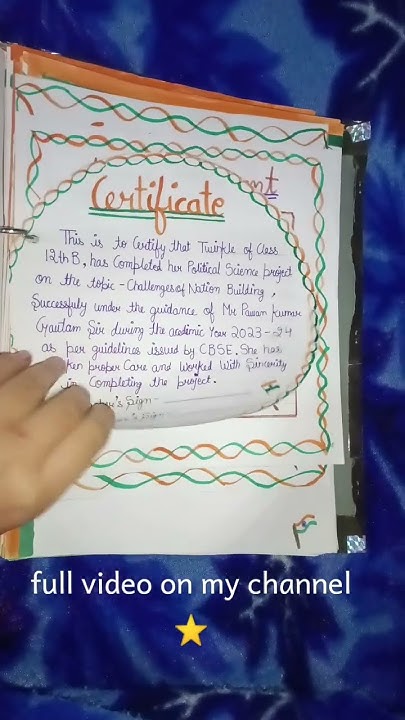 Certificate
nt
This is to Certify that Twinkle of Class
12th B, has Completed her Political Science project
on the topic - Challenges of Nation Building,
Successfuly under the guidance of Mr Pawan Kumar
Gautam Sir during the acedmic Year 2023--24
as per guidelines issued by CBSE. She has
ken proper Care and Worked With Sincerity
in Completing the project.
Sign-
full video on my channel